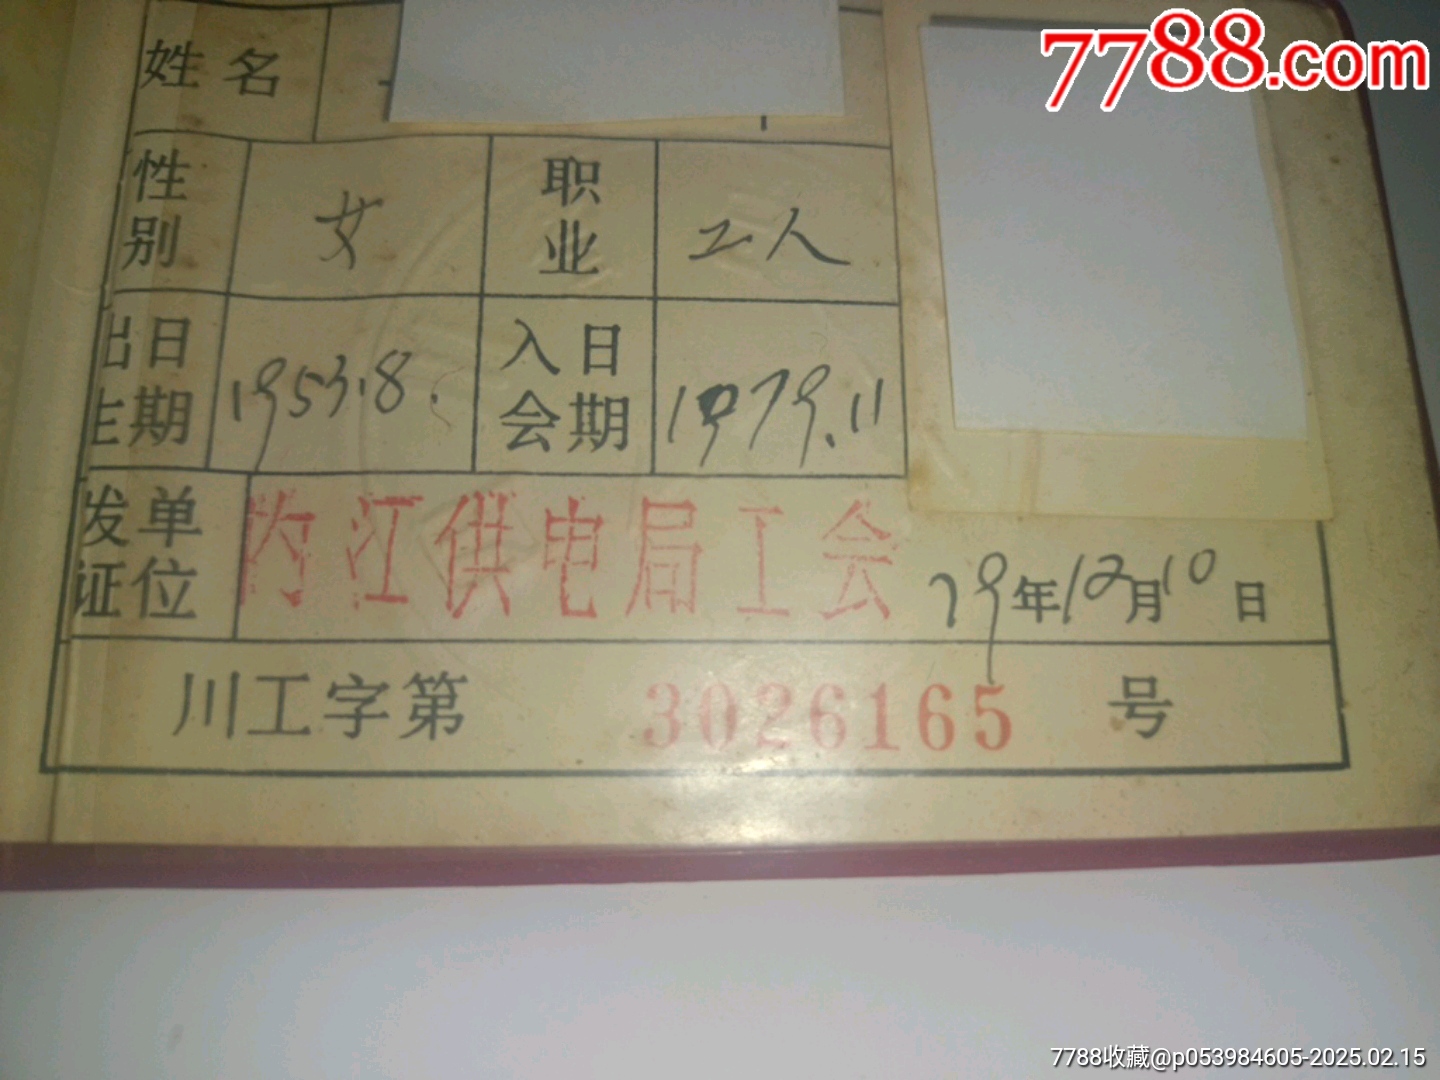 7788.com
姓名
性别 女 职业 工人
出生日期 1953.8. 入会日期 1979.11
发证单位 内江供电局工会 79年12月10日
川工字第 3026165 号
7788收藏@p053984605-2025.02.15